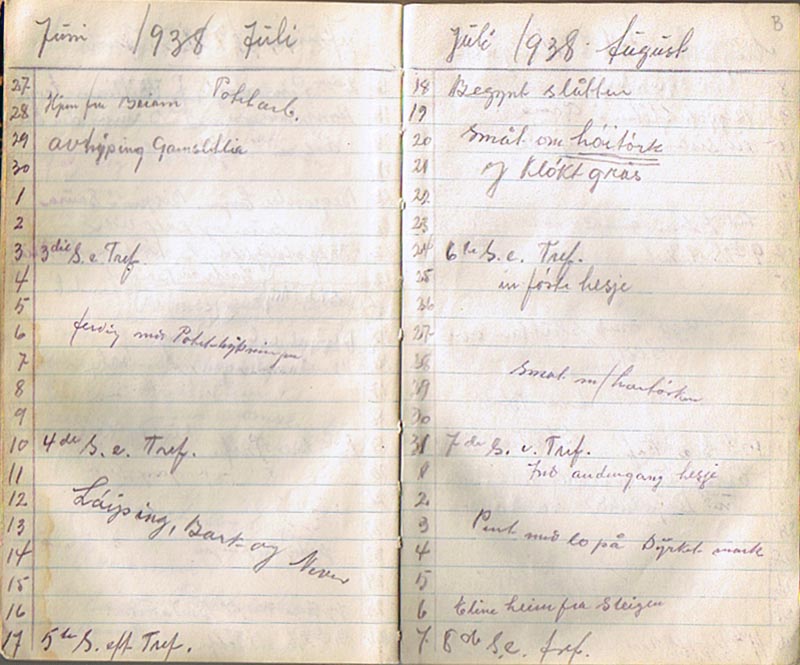 Juni 1938 Juli
27
28 Hjem fra Beiarn Potetarb.
29 avhyping Gamslilia
30
1
2
3 3die S. e. Tref.
4
5
6 ferdig med Potethypningen
7
8
9
10 4de S. e. Tref.
11
12 Láiping, Bark og Never
13
14
15
16
17 5te S. eft Tref.
Juli 1938 August
B
18 Begynt slåtten
19
20 Småt om høitørk
21 og Kløkt gras
22
23
24 6te S. e. Tref.
25 in førte hesje
26
27
28 Smat m/høitørken
29
30
31 7de S. e. Tref.
1 andengang hesje
2
3 Pent med lo på Dyrket mark
4
5
6 Eline heim fra Steigen
7 8de S. e. Tref.